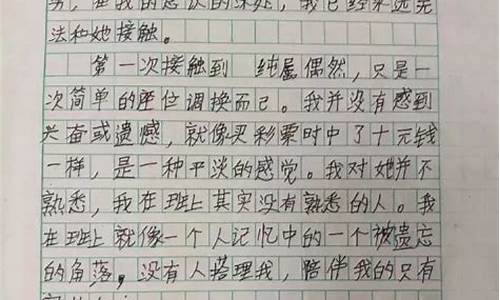 界，在我的意识的深处，我已经永远无
法和她接触。
第一次接触到 纯属偶然，只是一
次简单的座位调换而已。我并没有感到
兴奋或遗憾，就像买彩票时中了十元钱
一样，是一种平淡的感觉。我对她并不
熟悉，我在班上其实没有熟悉的人。我
在班上就像一个人记忆中的一个被遗忘
的角落。没有人搭理我，陪伴我的只有